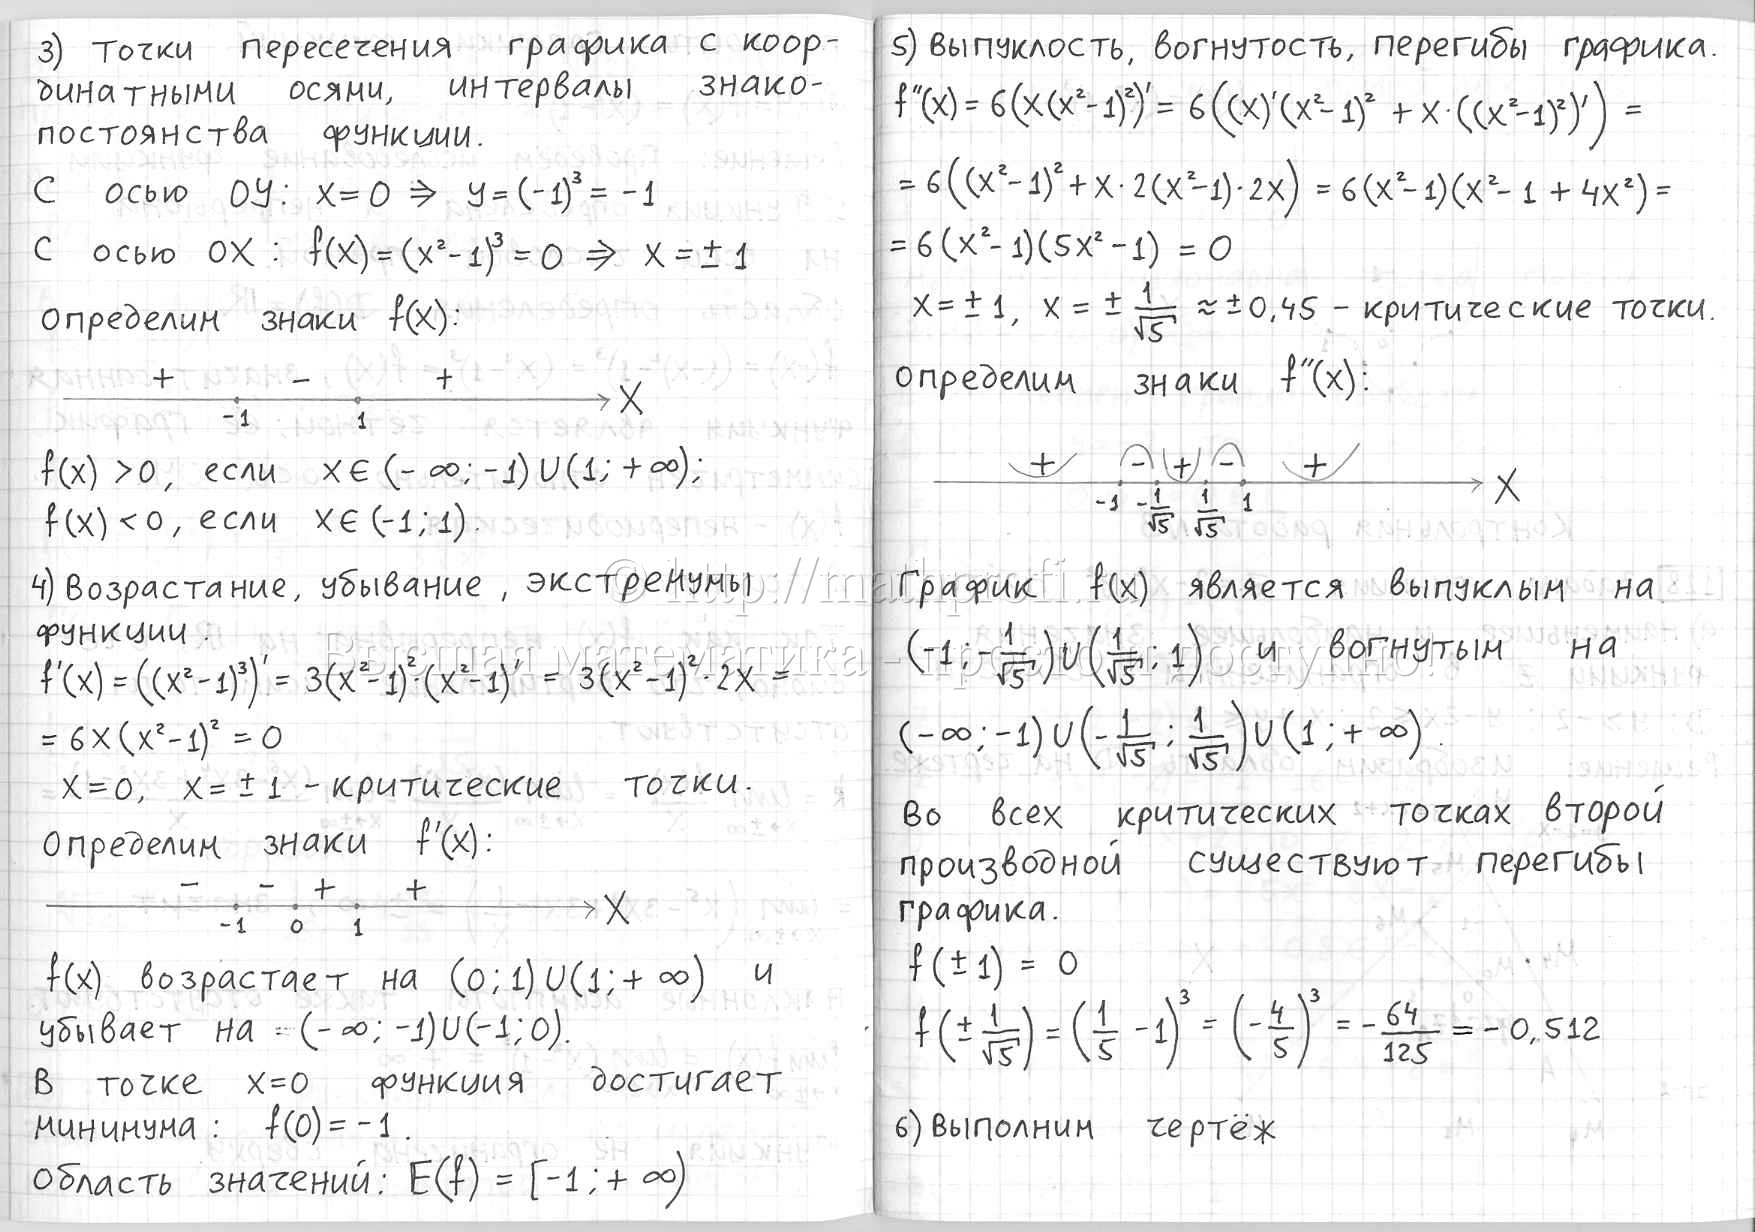 3) Точки пересечения графика с коор-
динатными осями, интервалы знако-
постоянства функции.
С осью OY: x=0 ⇒ y=(-1)³=-1
С осью OX: f(x)=(x²-1)³=0 ⇒ x=±1
Определим знаки f(x):
+ - +
-1 1 X
f(x)>0, если x∈(-∞;-1)∪(1;+∞);
f(x)<0, если x∈(-1;1).
4) Возрастание, убывание, экстремумы
функции.
f'(x)=((x²-1)³)'=3(x²-1)²·(x²-1)'=3(x²-1)²·2x=
=6x(x²-1)²=0
x=0, x=±1 - критические точки.
Определим знаки f'(x):
- - + +
-1 0 1 X
f(x) возрастает на (0;1)∪(1;+∞) и
убывает на (-∞;-1)∪(-1;0).
В точке x=0 функция достигает
минимума: f(0)=-1.
Область значений: E(f)=[-1;+∞)
5) Выпуклость, вогнутость, перегибы графика.
f''(x)=6(x(x²-1)²)'=6((x)'(x²-1)²+x·((x²-1)²)')=
=6((x²-1)²+x·2(x²-1)·2x)=6(x²-1)(x²-1+4x²)=
=6(x²-1)(5x²-1)=0
x=±1, x=±1/√5≈±0,45 - критические точки.
Определим знаки f''(x):
+ - + - +
-1 -1/√5 1/√5 1 X
График f(x) является выпуклым на
(-1;-1/√5)∪(1/√5;1) и вогнутым на
(-∞;-1)∪(-1/√5;1/√5)∪(1;+∞).
Во всех критических точках второй
производной существуют перегибы
графика.
f(±1)=0
f(±1/√5)=(1/5-1)³=(-4/5)³=-64/125=-0,512
6) Выполним чертёж
© http://mathprofi.ru
Высшая математика – просто и доступно!